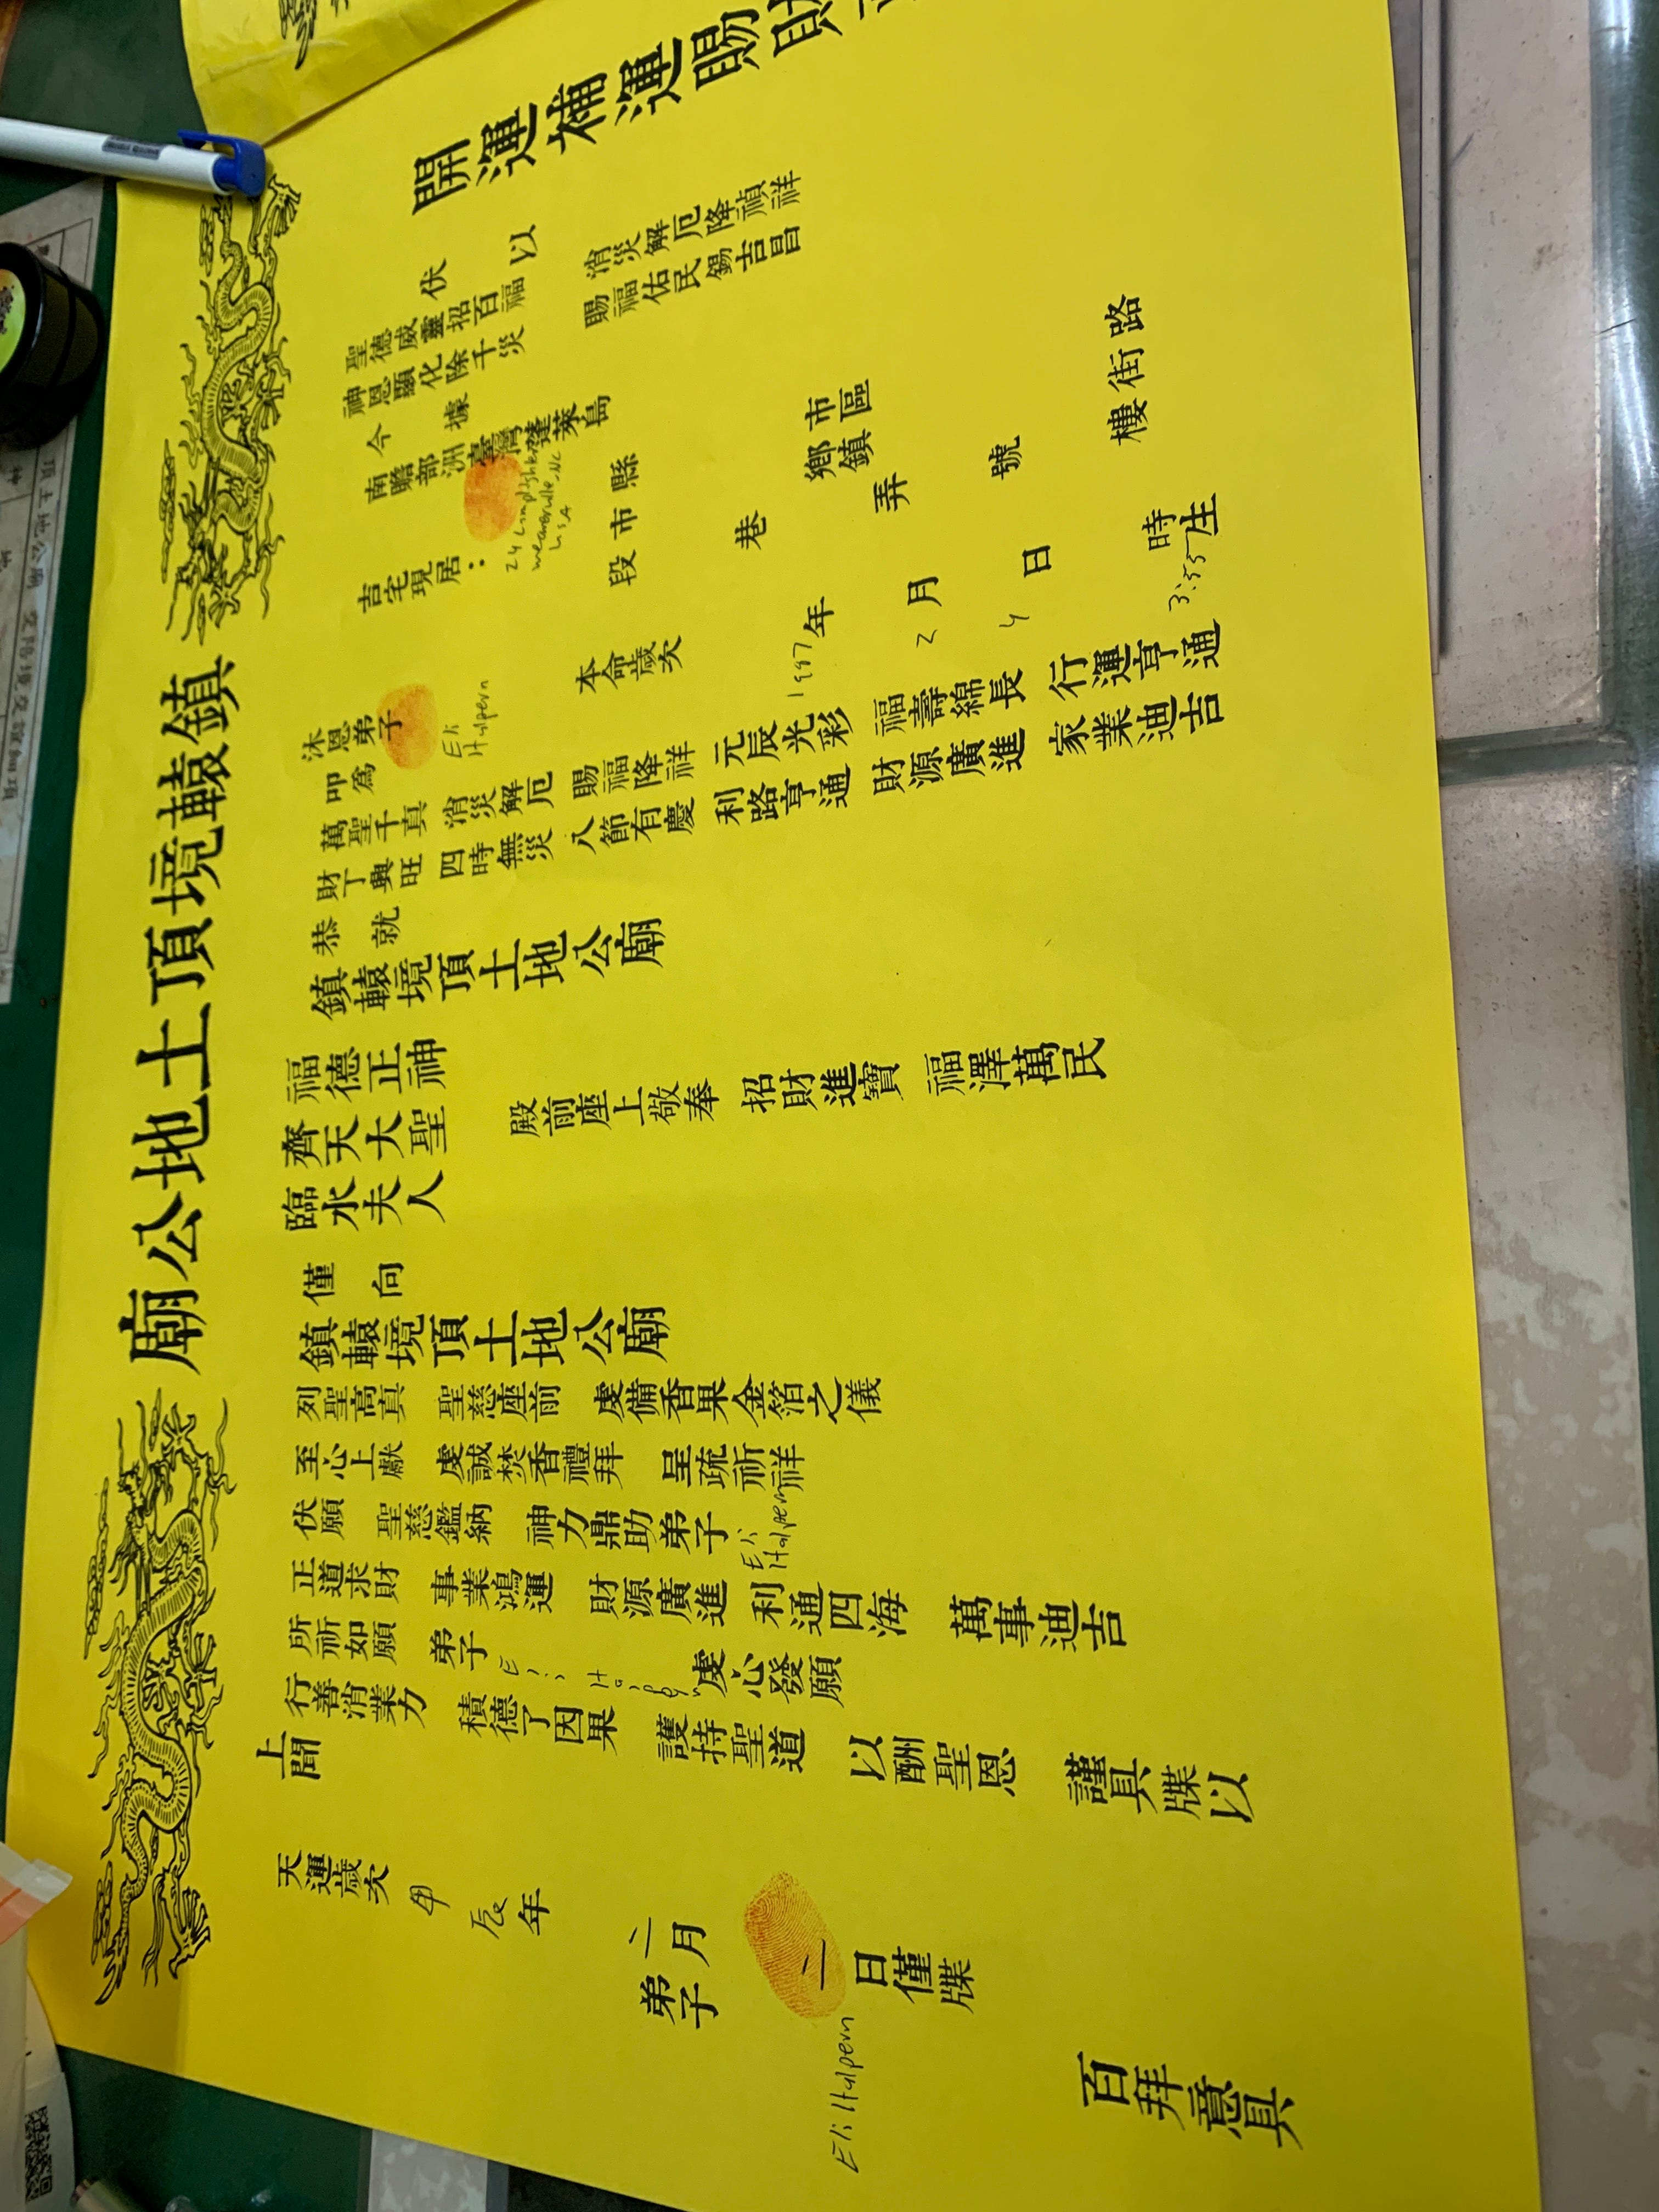 鎮轅境頂土地公廟
開運補運賜財
伏以
聖德威靈招百福 消災解厄降禎祥
神恩顯化除千災 賜福佑民錫吉昌
今據
南瞻部洲臺灣蓬萊島 縣市 鄉鎮市區 路街
吉宅現居: 24 Weaverville, NC USA 段 巷 弄 號 樓
沐恩弟子 Eli Halpern 本命歲次 1997年 2月 4日 3:55時生
叩為
萬聖千真 消災解厄 賜福降祥 元辰光彩 福壽綿長 行運亨通
財丁興旺 四時無災 八節有慶 利路亨通 財源廣進 家業迪吉
恭就
鎮轅境頂土地公廟
福德正神
齊天大聖 殿前座上敬奉 招財進寶 福澤萬民
臨水夫人
僅向
鎮轅境頂土地公廟
列聖高真 聖慈座前 虔備香果金箔之儀
至心上獻 虔誠焚香禮拜 呈疏祈祥
伏願 聖慈鑑納 神力鼎助弟子 Eli Halpern
正道求財 事業鴻運 財源廣進 利通四海 萬事迪吉
所祈如願 弟子 Eli Halpern 虔心發願
行善消業力 積德了因果 護持聖道 以酬聖恩 謹具牒以
上聞
天運歲次甲辰年 二月 二日僅牒
弟子 Eli Halpern 百拜意具